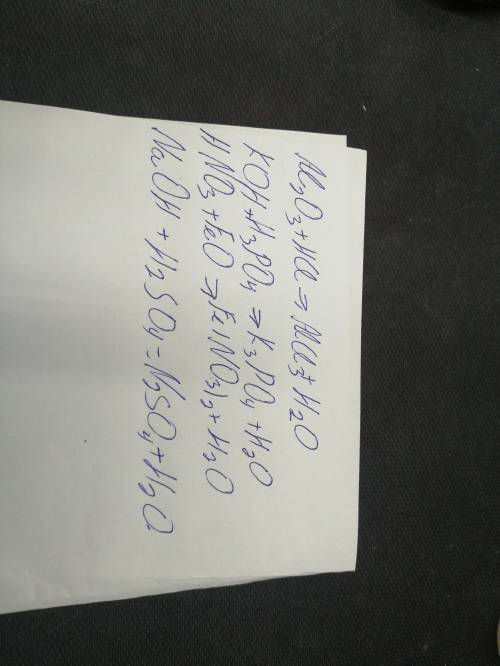 Al2O3 + HCl → AlCl3 + H2O
KOH + H3PO4 → K3PO4 + H2O
HNO3 + FeO → Fe(NO3)2 + H2O
NaOH + H2SO4 = N2SO4 + H2O